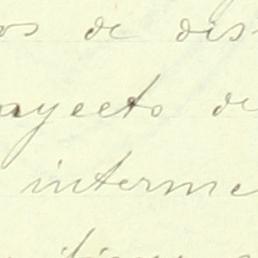 os de dis
ayecto de
interme